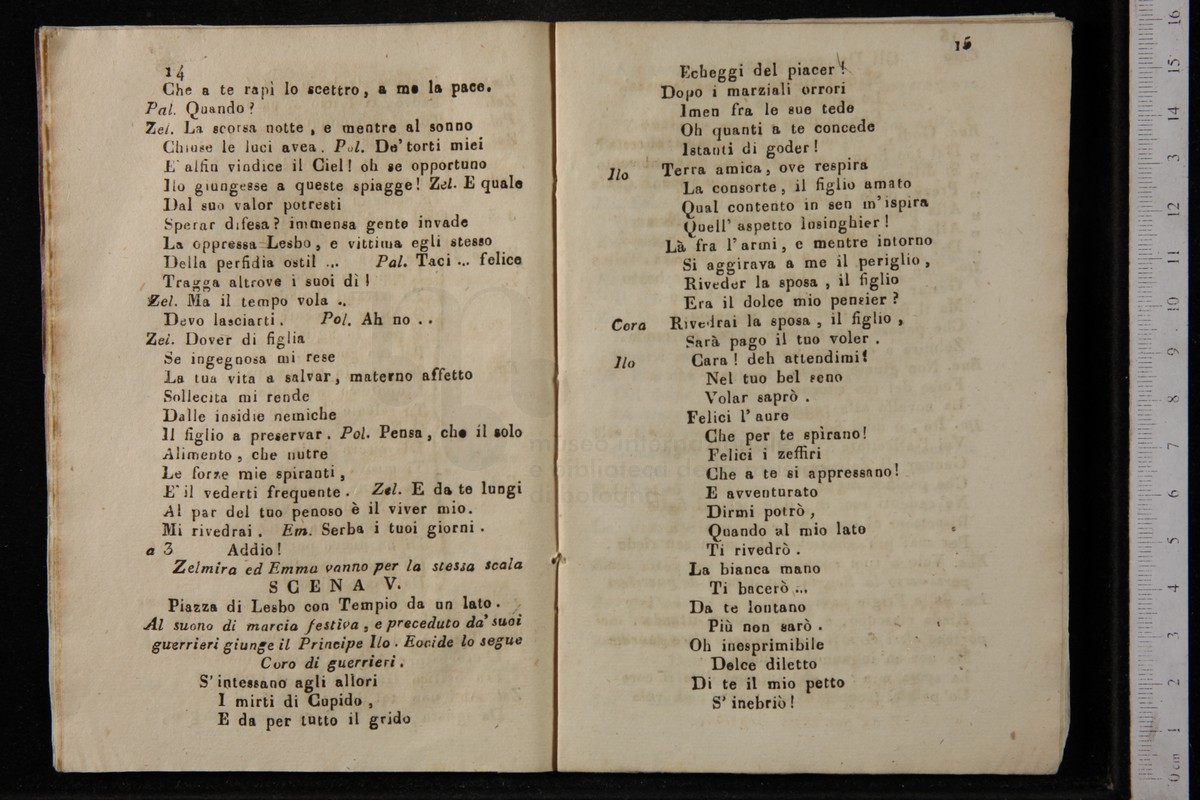 14
Che a te rapì lo scettro, a me la pace.
Pal. Quando?
Zel. La scorsa notte, e mentre al sonno
Chiuse le luci avea. Pol. De' torti miei
E' alfin vindice il Ciel! oh se opportuno
Ilo giungesse a queste spiagge! Zel. E quale
Dal suo valor potresti
Sperar difesa? immensa gente invade
La oppressa Lesbo, e vittima egli stesso
Della perfidia ostil ... Pal. Taci ... felice
Tragga altrove i suoi dì!
Zel. Ma il tempo vola ..
Devo lasciarti. Pol. Ah no ..
Zel. Dover di figlia
Se ingegnosa mi rese
La tua vita a salvar, materno affetto
Sollecita mi rende
Dalle insidie nemiche
Il figlio a preservar. Pol. Pensa, che il solo
Alimento, che nutre
Le forze mie spiranti,
E' il vederti frequente. Zel. E da te lungi
Al par del tuo penoso è il viver mio.
Mi rivedrai. Em. Serba i tuoi giorni.
a 3 Addio!
Zelmira ed Emma vanno per la stessa scala
SCENA V.
Piazza di Lesbo con Tempio da un lato.
Al suono di marcia festiva, e preceduto da' suoi
guerrieri giunge il Principe Ilo. Eacide lo segue
Coro di guerrieri.
S' intessano agli allori
I mirti di Cupido,
E da per tutto il grido
15
Echeggi del piacer!
Dopo i marziali orrori
Imen fra le sue tede
Oh quanti a te concede
Istanti di goder!
Ilo Terra amica, ove respira
La consorte, il figlio amato
Qual contento in sen m'ispira
Quell' aspetto lusinghier!
Là fra l'armi, e mentre intorno
Si aggirava a me il periglio,
Riveder la sposa, il figlio
Era il dolce mio pensier?
Coro Rivedrai la sposa, il figlio,
Sarà pago il tuo voler.
Ilo Cara! deh attendimi!
Nel tuo bel seno
Volar saprò.
Felici l' aure
Che per te spirano!
Felici i zeffiri
Che a te si appressano!
E avventurato
Dirmi potrò,
Quando al mio lato
Ti rivedrò.
La bianca mano
Ti bacerò ...
Da te lontano
Più non sarò.
Oh inesprimibile
Dolce diletto
Di te il mio petto
S' inebriò!